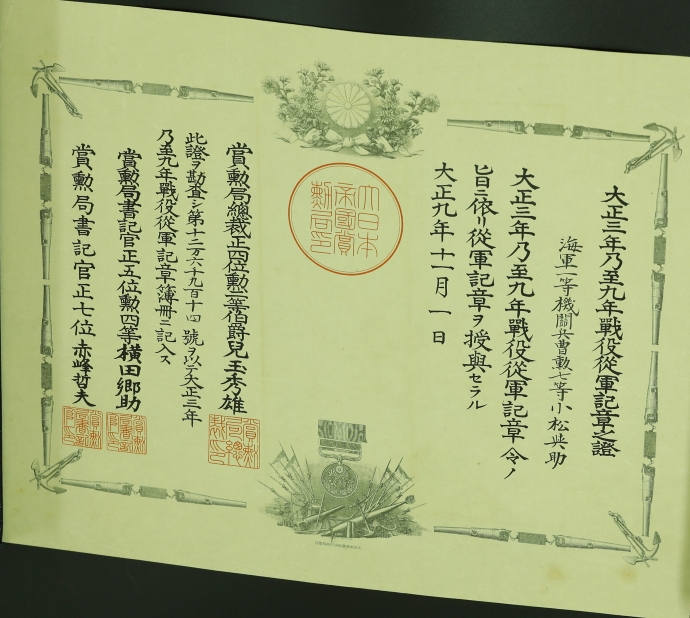 大正三年乃至九年戰役從軍記章之證
海軍一等機關兵曹勳七等小松與助
大正三年乃至九年戰役從軍記章令ノ
旨ニ依リ從軍記章ヲ授與セラル
大正九年十一月一日
大日本
帝國賞
勳局印
賞勳局總裁正四位勳二等伯爵兒玉秀雄
此證ヲ勘査シ第十二万六千九百十四號ヲ以テ大正三年
乃至九年戰役從軍記章簿册ニ記入ス
賞勳局書記官正五位勳四等橫田郷助
賞勳局書記官正七位赤峰哲夫